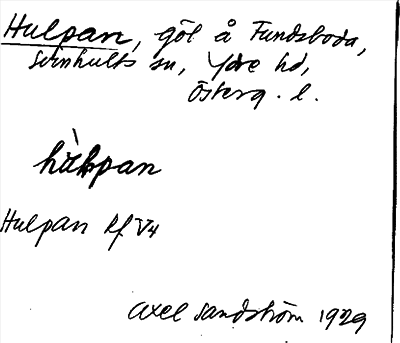 Hulpan, göl å Fundsboda,
Svinhults sn, Ydre hd,
Österg. l.
hùlpan
Hulpan Rf V4
Axel Sandström 1929